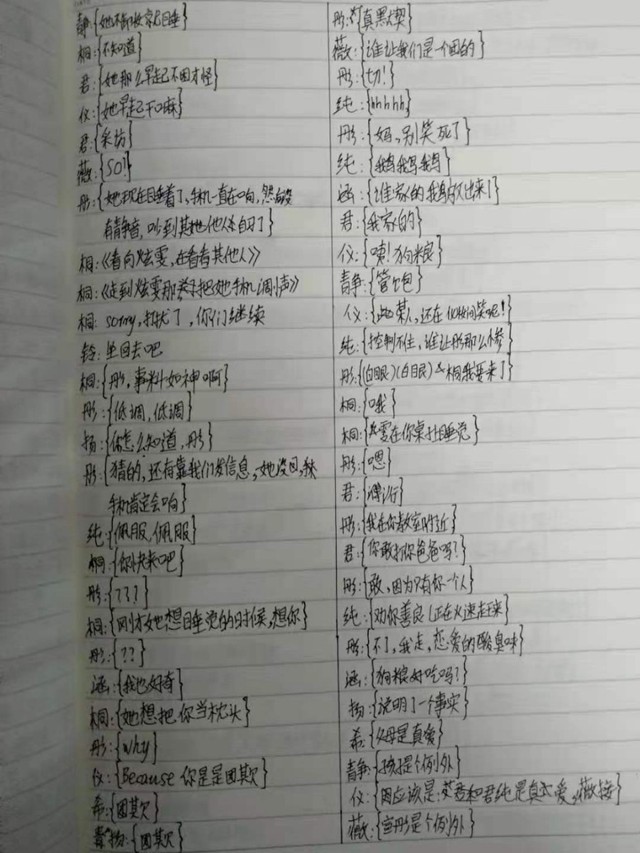 静:{她不都收拾就睡}
桐:{不知道}
君:{她那么早起不困才怪}
仪:{她早起干嘛}
君:{采访}
薇:{SO!}
彤:{她现在睡着了,手机一直在响,然后没
有静音,吵到其她/他休息了}
桐:《看向炫雯,在看看其他人》
桐:《走到炫雯那举把她手机调小声》
桐: sorry,打扰了,你们继续
铃: 坐回去吧
桐:{彤,事料如神啊}
彤:{低调,低调}
扬:{你怎么知道,彤}
彤:{猜的,还有靠我们发信息,她没回,
手机肯定会响}
纯:{佩服,佩服}
桐:{你快来吧}
彤:{???}
桐:{刚才她想睡觉的时候,想你}
彤:{??}
涵:{我也好奇}
桐:{她想把你当枕头}
彤:{why}
仪:{Because 你是是团欺}
希:{团欺}
扬:{团欺}
彤:{真默契}
薇:{谁让我们是一个团的}
彤:{切!}
纯:{hhhhh}
彤:{妈,别笑死了}
纯:{鹅鹅鹅鹅}
涵:{谁家的鹅放出来了}
君:{我家的}
仪:{噢!狗粮}
静:{管饱}
仪:{某人,还在化妆间笑呢!}
纯:{控制不住,谁让彤那么惨}
彤:{(白眼)(白眼)&桐我要来了}
桐:{哦}
桐:{雯在你桌上睡觉}
彤:{嗯}
君:{嘿,}
彤:{我在你教室附近}
君:{你敢打你爸爸吗?}
彤:{敢,因为只有你一个人}
纯:{劝你善良,正在火速赶来}
彤:{不了,我走,恋爱的酸臭味}
涵:{狗粮好吃吗?}
扬:{说明了一个事实}
希:{父母是真爱}
静:{孩子是个例外}
仪:{因应该是:文君和君纯是真爱,薇接}
薇:{宣彤是个例外}